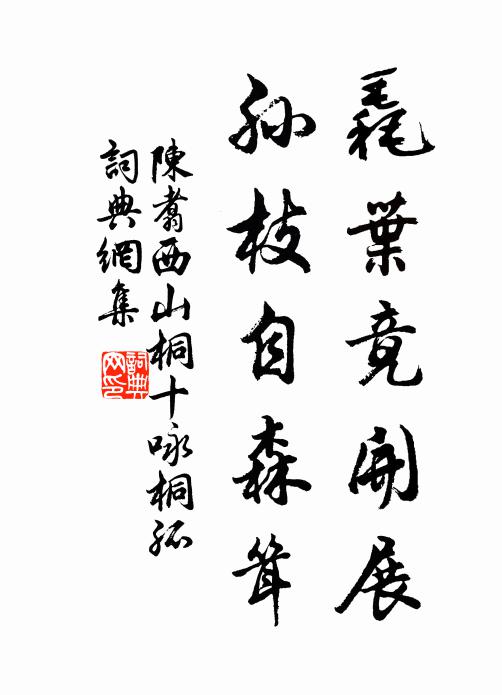 毳葉竟開展
孫枝自森聳
陳翥西山桐十咏桐孤
詞典網集
詞典網印